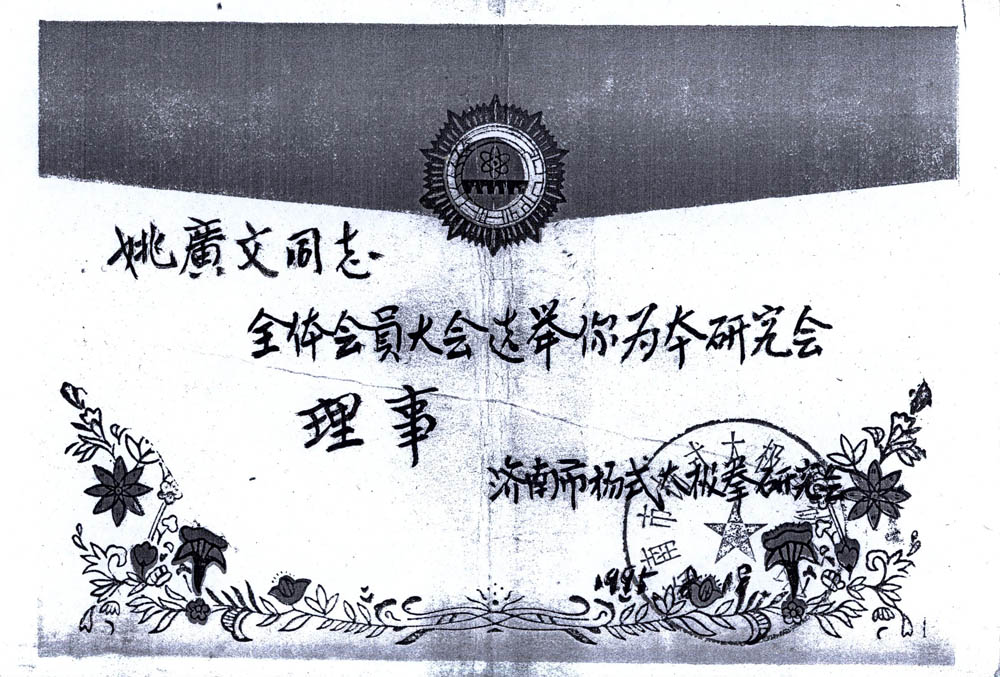 姚廣文同志
全体会員大会选举你为本研究会
理事
济南市杨式太极拳研究会
1995